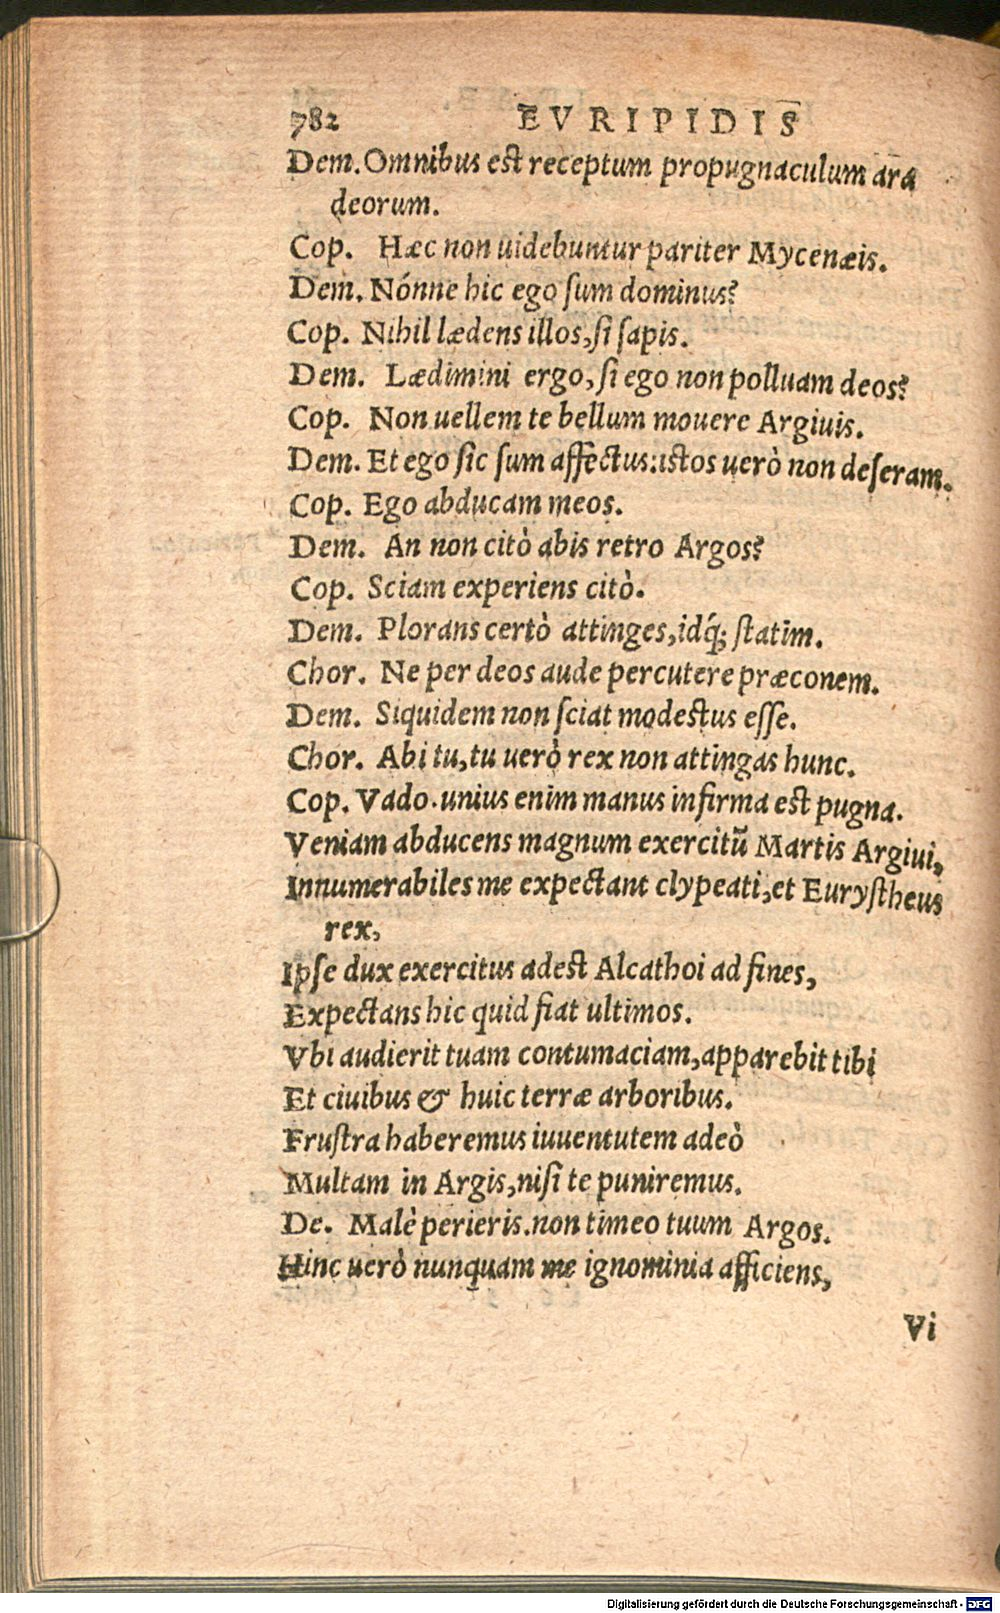 782 EVRIPIDIS
Dem. Omnibus est receptum propugnaculum ara
deorum.
Cop. Hæc non uidebuntur pariter Mycenæis.
Dem. Nónne hic ego sum dominus?
Cop. Nihil lædens illos, si sapis.
Dem. Lædimini ergo, si ego non polluam deos?
Cop. Non uellem te bellum mouere Argiuis.
Dem. Et ego sic sum affectus: istos uerò non deseram.
Cop. Ego abducam meos.
Dem. An non citò abis retro Argos?
Cop. Sciam experiens citò.
Dem. Plorans certò attinges, idq́; statim.
Chor. Ne per deos aude percutere præconem.
Dem. Siquidem non sciat modestus esse.
Chor. Abi tu, tu uerò rex non attingas hunc.
Cop. Vado. unius enim manus infirma est pugna.
Veniam abducens magnum exercitũ Martis Argiui,
Innumerabiles me expectant clypeati, et Eurystheus
rex,
Ipse dux exercitus adest Alcathoi ad fines,
Expectans hic quid fiat ultimos.
Vbi audierit tuam contumaciam, apparebit tibi
Et ciuibus & huic terræ arboribus.
Frustra haberemus iuuentutem adeò
Multam in Argis, nisi te puniremus.
De. Malè perieris. non timeo tuum Argos.
Hinc uerò nunquam me ignominia afficiens,
Vi
Digitalisierung gefördert durch die Deutsche Forschungsgemeinschaft - DFG